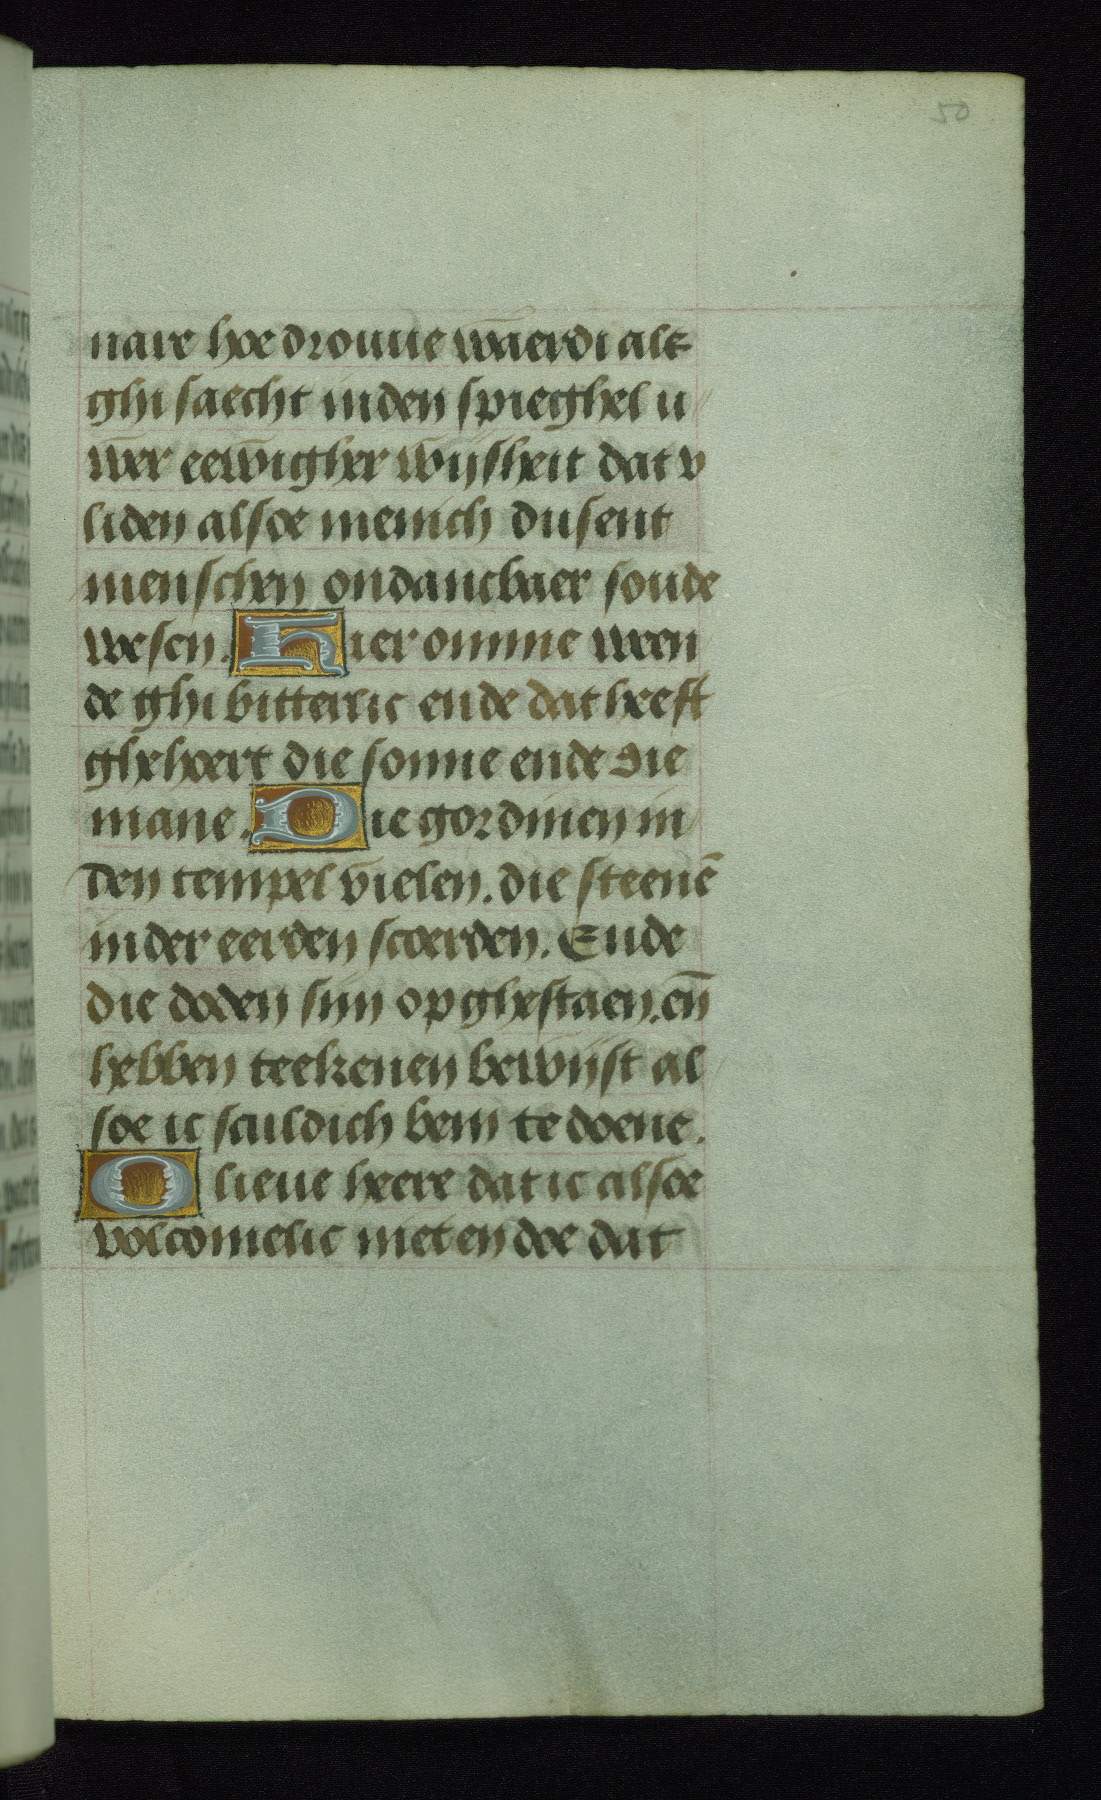 50
nare hoe drouue waerdi alt
ghi saecht inden spieghel u
wer eewigher wijsheit dat v
liden alsoe menich dusent
menschen ondancbaer soude
wesen. Hier omme ween
de ghi bitterlic ende dat heeft
ghehoert die sonne ende die
mane. Die gordinen in
den tempel vielen. die steenē
in der eerden scoerden. Ende
die doden sijn opghestaen. eñ
hebben teekenen bewijst al
soe ic sculdich bem te doene.
O lieue heere dat ic alsoe
volcomelic niet en doe dat